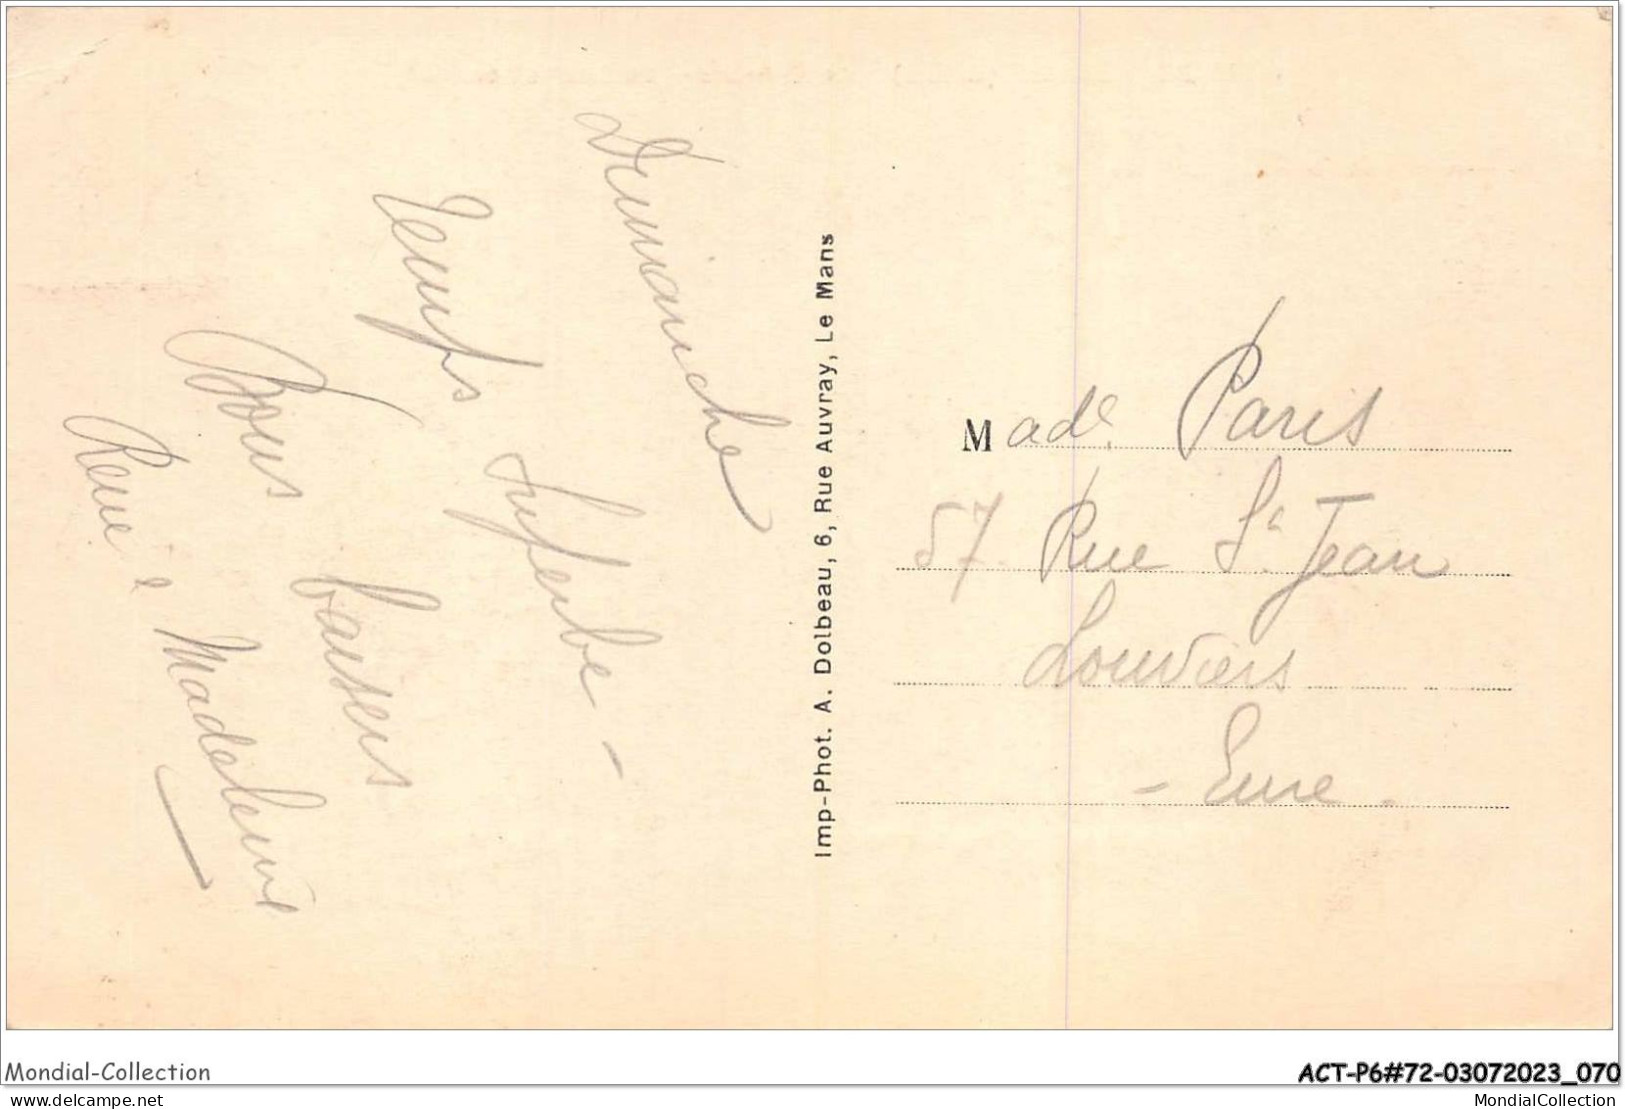 Dimanche
Temps superbe -
Bons baisers
René e Madeleine
Imp-Phot. A. Dolbeau, 6, Rue Auvray, Le Mans
Made Paris
57 Rue St Jean
Louviers
- Eure.
Mondial-Collection
ACT-P6#72-03072023_070
delcampe.net
MondialCollection